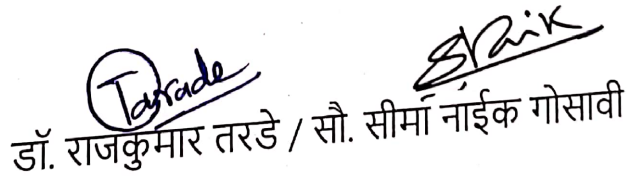 Tarade SNaik
डॉ. राजकुमार तरडे / सौ. सीमा नाईक गोसावी